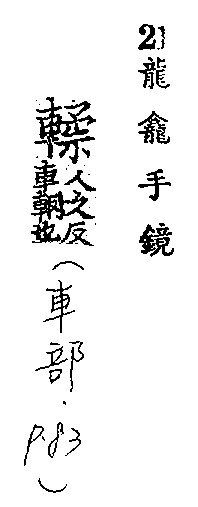 21龍龕手鏡
人之反
車輞也
（車部．p.83）